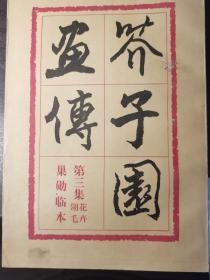 芥子園
畫傳
第三集花卉翎毛
巢勋临本